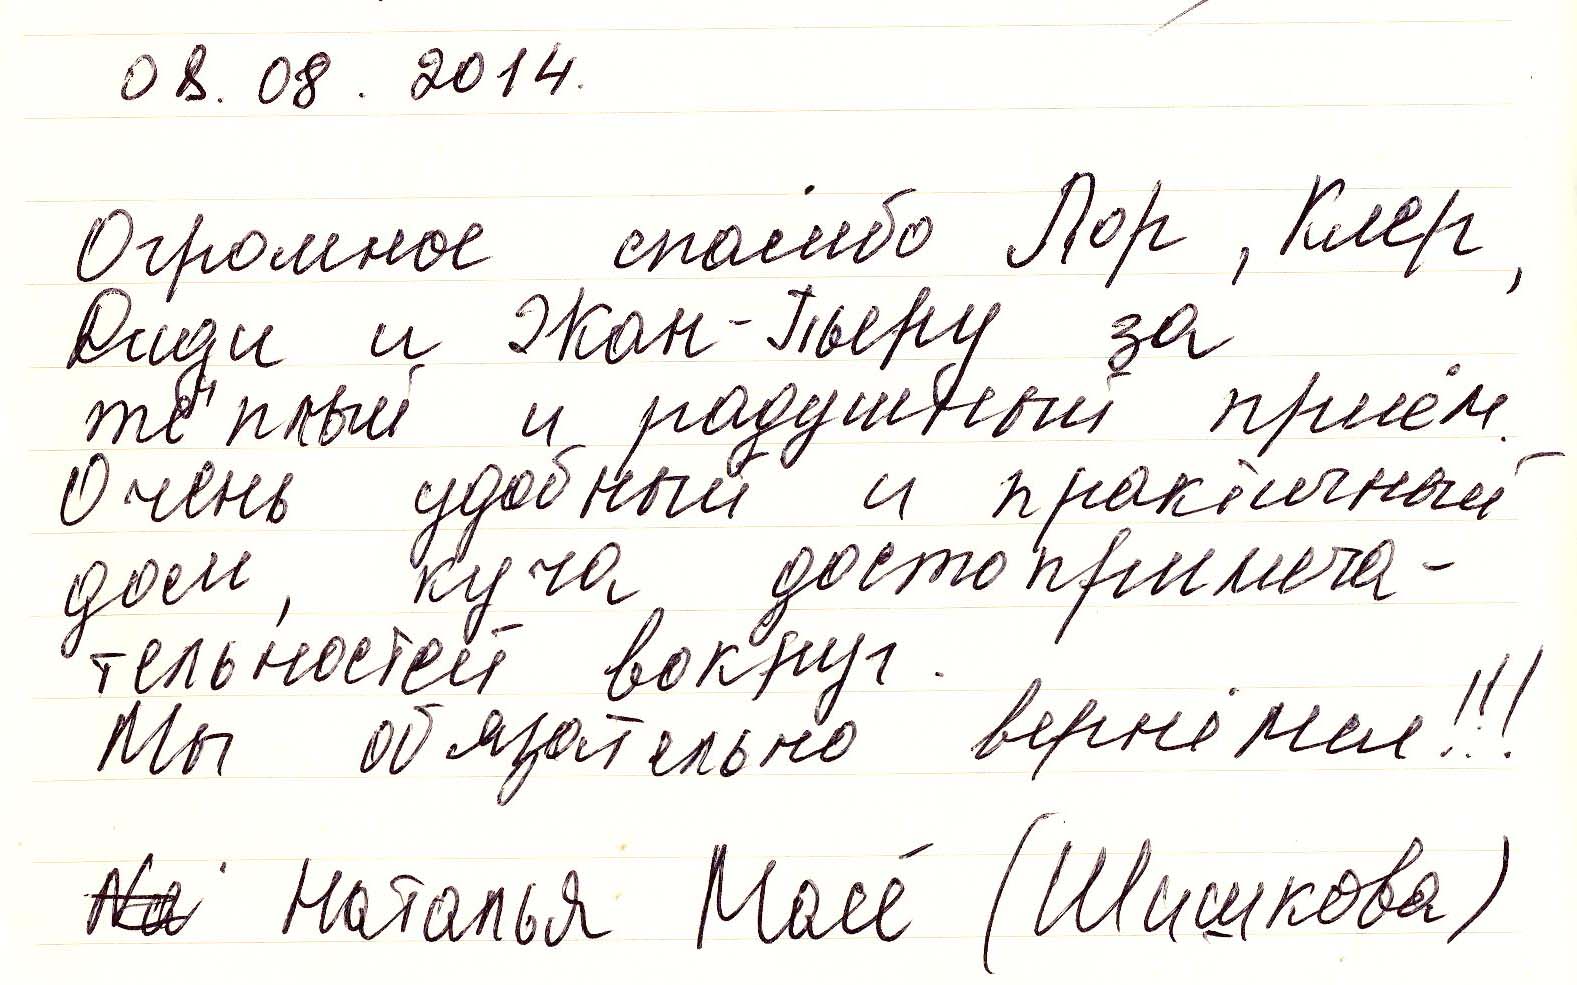 08.08.2014.
Огромное спасибо Лор, Клер,
Диди и Жан-Пьеру за
тёплый и радушный приём.
Очень удобный и практичный
дом, куча достопримеча-
тельностей вокруг.
Мы обязательно вернёмся!!!
Наталья Массé (Шишкова)